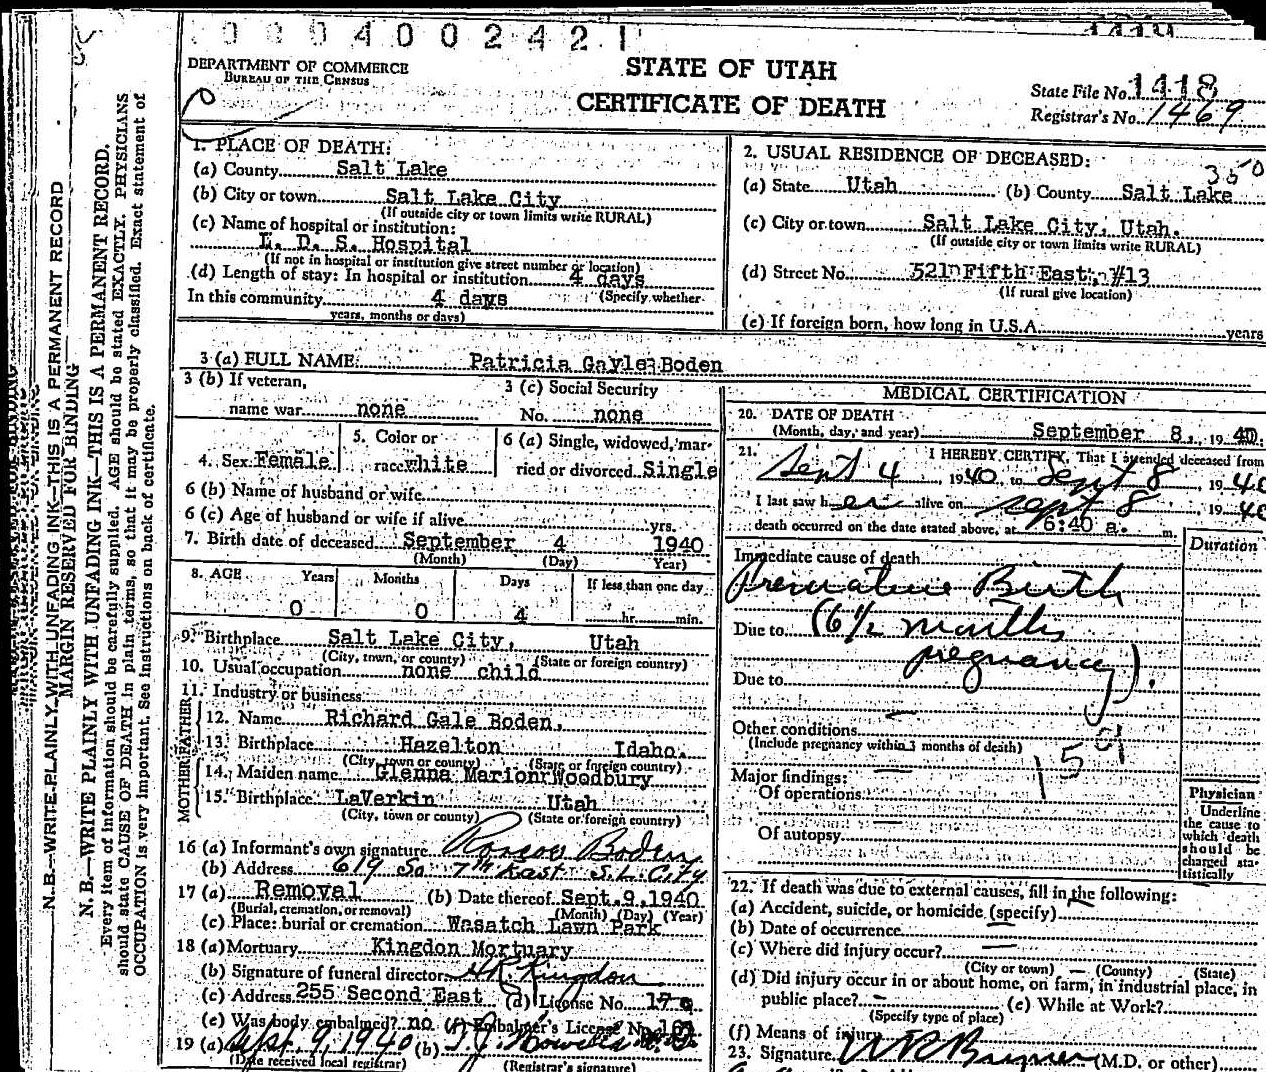 0004002421
1419
DEPARTMENT OF COMMERCE
BUREAU OF THE CENSUS
STATE OF UTAH
CERTIFICATE OF DEATH
State File No. 1418
Registrar's No. 1469
N. B.—WRITE PLAINLY WITH UNFADING INK—THIS IS A PERMANENT RECORD
MARGIN RESERVED FOR BINDING
N. B.—WRITE PLAINLY WITH UNFADING INK—THIS IS A PERMANENT RECORD.
Every item of information should be carefully supplied. AGE should be stated EXACTLY. PHYSICIANS
should state CAUSE OF DEATH in plain terms, so that it may be properly classified. Exact statement of
OCCUPATION is very important. See instructions on back of certificate.
1. PLACE OF DEATH:
(a) County Salt Lake
(b) City or town Salt Lake City
(If outside city or town limits write RURAL)
(c) Name of hospital or institution:
L. D. S. Hospital
(If not in hospital or institution give street number or location)
(d) Length of stay: In hospital or institution 4 days
In this community 4 days (Specify whether
years, months or days)
2. USUAL RESIDENCE OF DECEASED:
350
(a) State Utah (b) County Salt Lake
(c) City or town Salt Lake City, Utah.
(If outside city or town limits write RURAL)
(d) Street No. 521 Fifth East, #13
(If rural give location)
(e) If foreign born, how long in U.S.A. years
3 (a) FULL NAME: Patricia Gayle Boden
3 (b) If veteran,
name war none
3 (c) Social Security
No. none
4. Sex Female
5. Color or
race white
6 (a) Single, widowed, mar-
ried or divorced Single
6 (b) Name of husband or wife
6 (c) Age of husband or wife if alive yrs.
7. Birth date of deceased September 4 1940
(Month) (Day) Year)
8. AGE Years Months Days If less than one day
0 0 4 hr. min.
9. Birthplace Salt Lake City, Utah
(City, town, or county) (State or foreign country)
10. Usual occupation none child
11. Industry or business
FATHER
12. Name Richard Gale Boden,
13. Birthplace Hazelton Idaho.
(City, town or county) (State or foreign country)
MOTHER
14. Maiden name Glenna Marion Woodbury
15. Birthplace LaVerkin Utah
(City, town or county) (State or foreign country)
16 (a) Informant's own signature Roscoe Boden
(b) Address 619 So 7th East S.L. City
17 (a) Removal (b) Date thereof Sept. 9, 1940
(Burial, cremation, or removal) (Month) (Day) (Year)
(c) Place: burial or cremation Wasatch Lawn Park
18 (a) Mortuary Kingdon Mortuary
(b) Signature of funeral director Kingdon
(c) Address 255 Second East (d) License No.
(e) Was body embalmed? no (f) Embalmer's License No.
19 (a) Sept. 9, 1940 (b)
(Date received local registrar) (Registrar's signature)
MEDICAL CERTIFICATION
20. DATE OF DEATH
(Month, day, and year) September 8, 1940.
21. I HEREBY CERTIFY, That I attended deceased from
Sept 4, 1940, to Sept 8, 1940
I last saw her alive on Sept 8, 1940
death occurred on the date stated above, at 6:40 a. m.
Duration
Immediate cause of death
Premature Birth
Due to (6 1/2 months
pregnancy).
Due to
Other conditions
(Include pregnancy within 3 months of death)
159
Major findings:
Of operations
Of autopsy
Physician
Underline
the cause to
which death
should be
charged sta-
tistically
22. If death was due to external causes, fill in the following:
(a) Accident, suicide, or homicide (specify)
(b) Date of occurrence
(c) Where did injury occur?
(City or town) (County) (State)
(d) Did injury occur in or about home, on farm, in industrial place, in
public place? (e) While at Work?
(Specify type of place)
(f) Means of injury
23. Signature (M.D. or other)